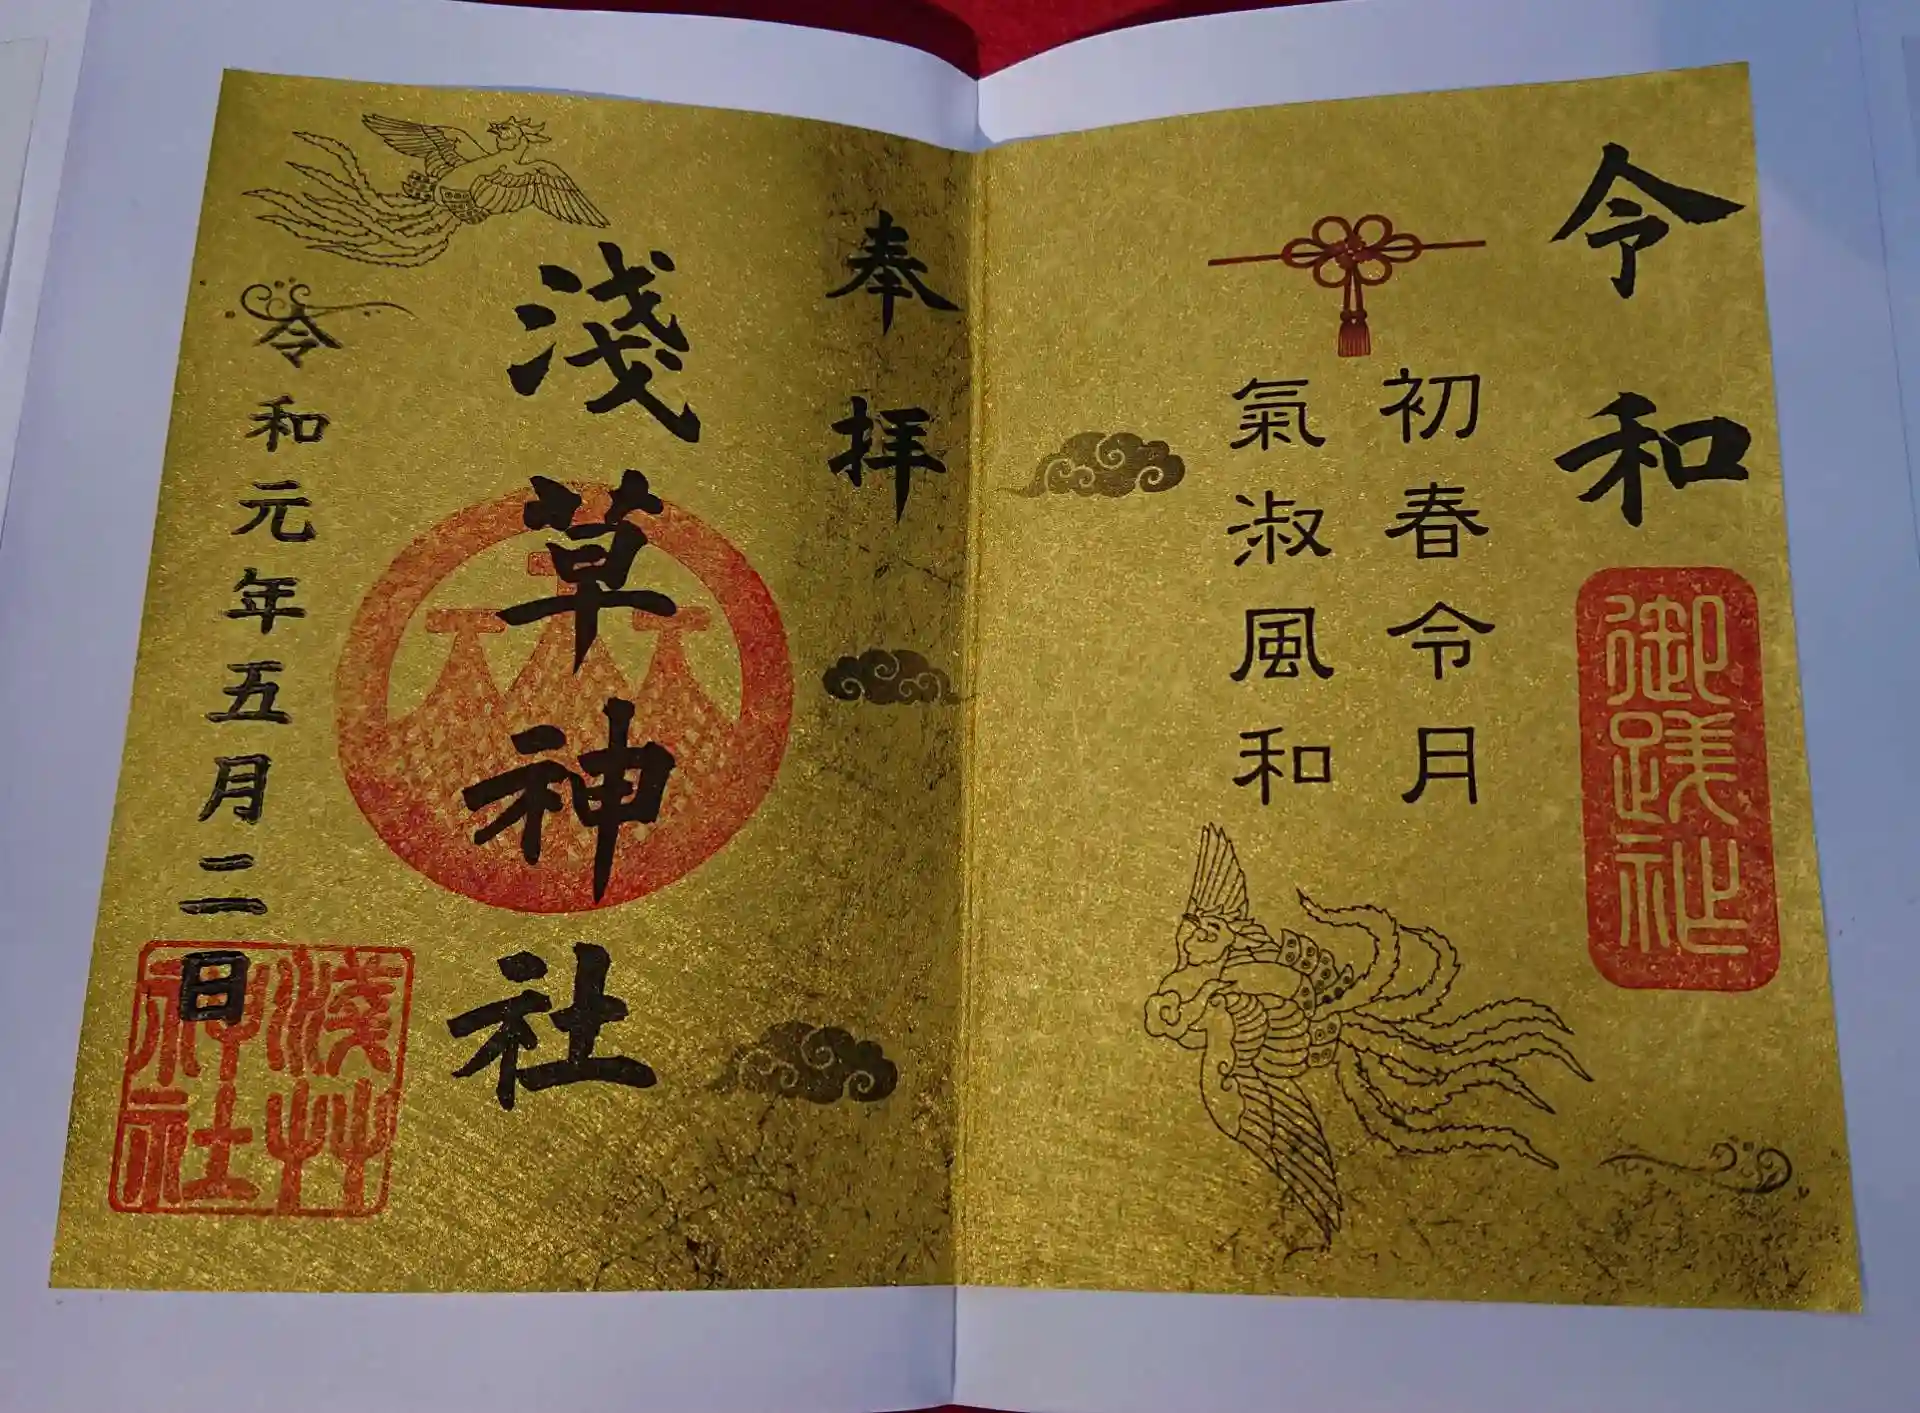 令和
御踐祚
初春令月
氣淑風和
奉拝
淺草神社
令和元年五月二日
淺艸神社